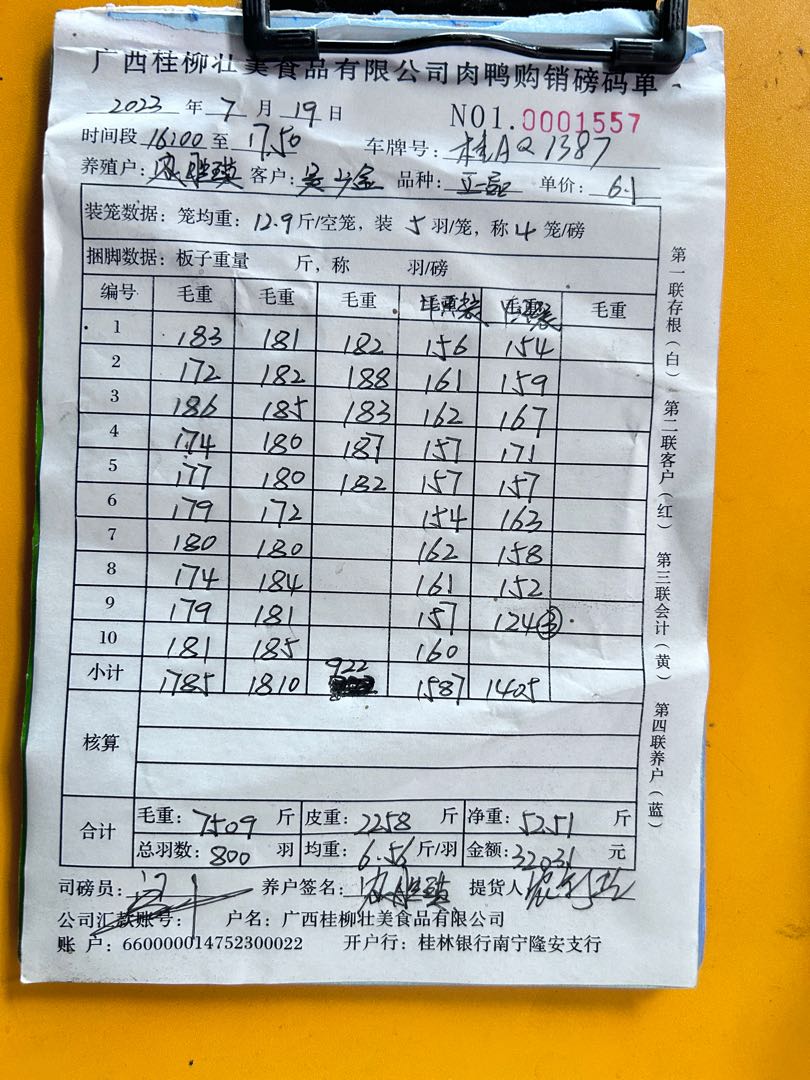 广西桂柳壮美食品有限公司肉鸭购销磅码单
2023 年 7 月 19 日 NO1.0001557
时间段 16:00 至 17.50 车牌号: 桂AQ1387
养殖户: 客户: 品种: 单价: 6.1
装笼数据: 笼均重: 12.9 斤/空笼, 装 5 羽/笼, 称 4 笼/磅
捆脚数据: 板子重量 斤, 称 羽/磅
编号 毛重 毛重 毛重 毛重 毛重 毛重
1 183 181 182 156 154
2 172 182 188 161 159
3 186 185 183 162 167
4 174 180 187 157 171
5 177 180 182 157 157
6 179 172 154 163
7 180 180 162 158
8 174 184 161 152
9 179 181 157 124 ③
10 181 185 160
小计 1785 1810 922 1587 1405
核算
合计 毛重: 7509 斤 皮重: 2258 斤 净重: 5251 斤
总羽数: 800 羽 均重: 6.56 斤/羽 金额: 32031 元
司磅员: 养户签名: 提货人
公司汇款账号: 户名: 广西桂柳壮美食品有限公司
账 户: 660000014752300022 开户行: 桂林银行南宁隆安支行
第一联存根(白) 第二联客户(红) 第三联会计(黄) 第四联养户(蓝)